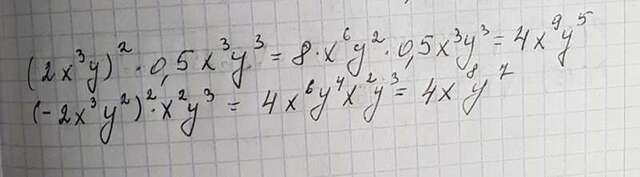 (2x³y)² · 0,5x³y³ = 8·x⁶y² · 0,5x³y³ = 4x⁹y⁵
(-2x³y²)² · x²y³ = 4x⁶y⁴x²y³ = 4x⁸y⁷